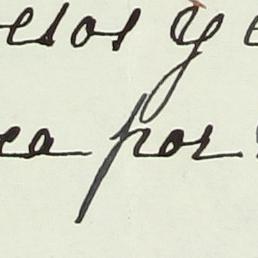 esos y
ea por